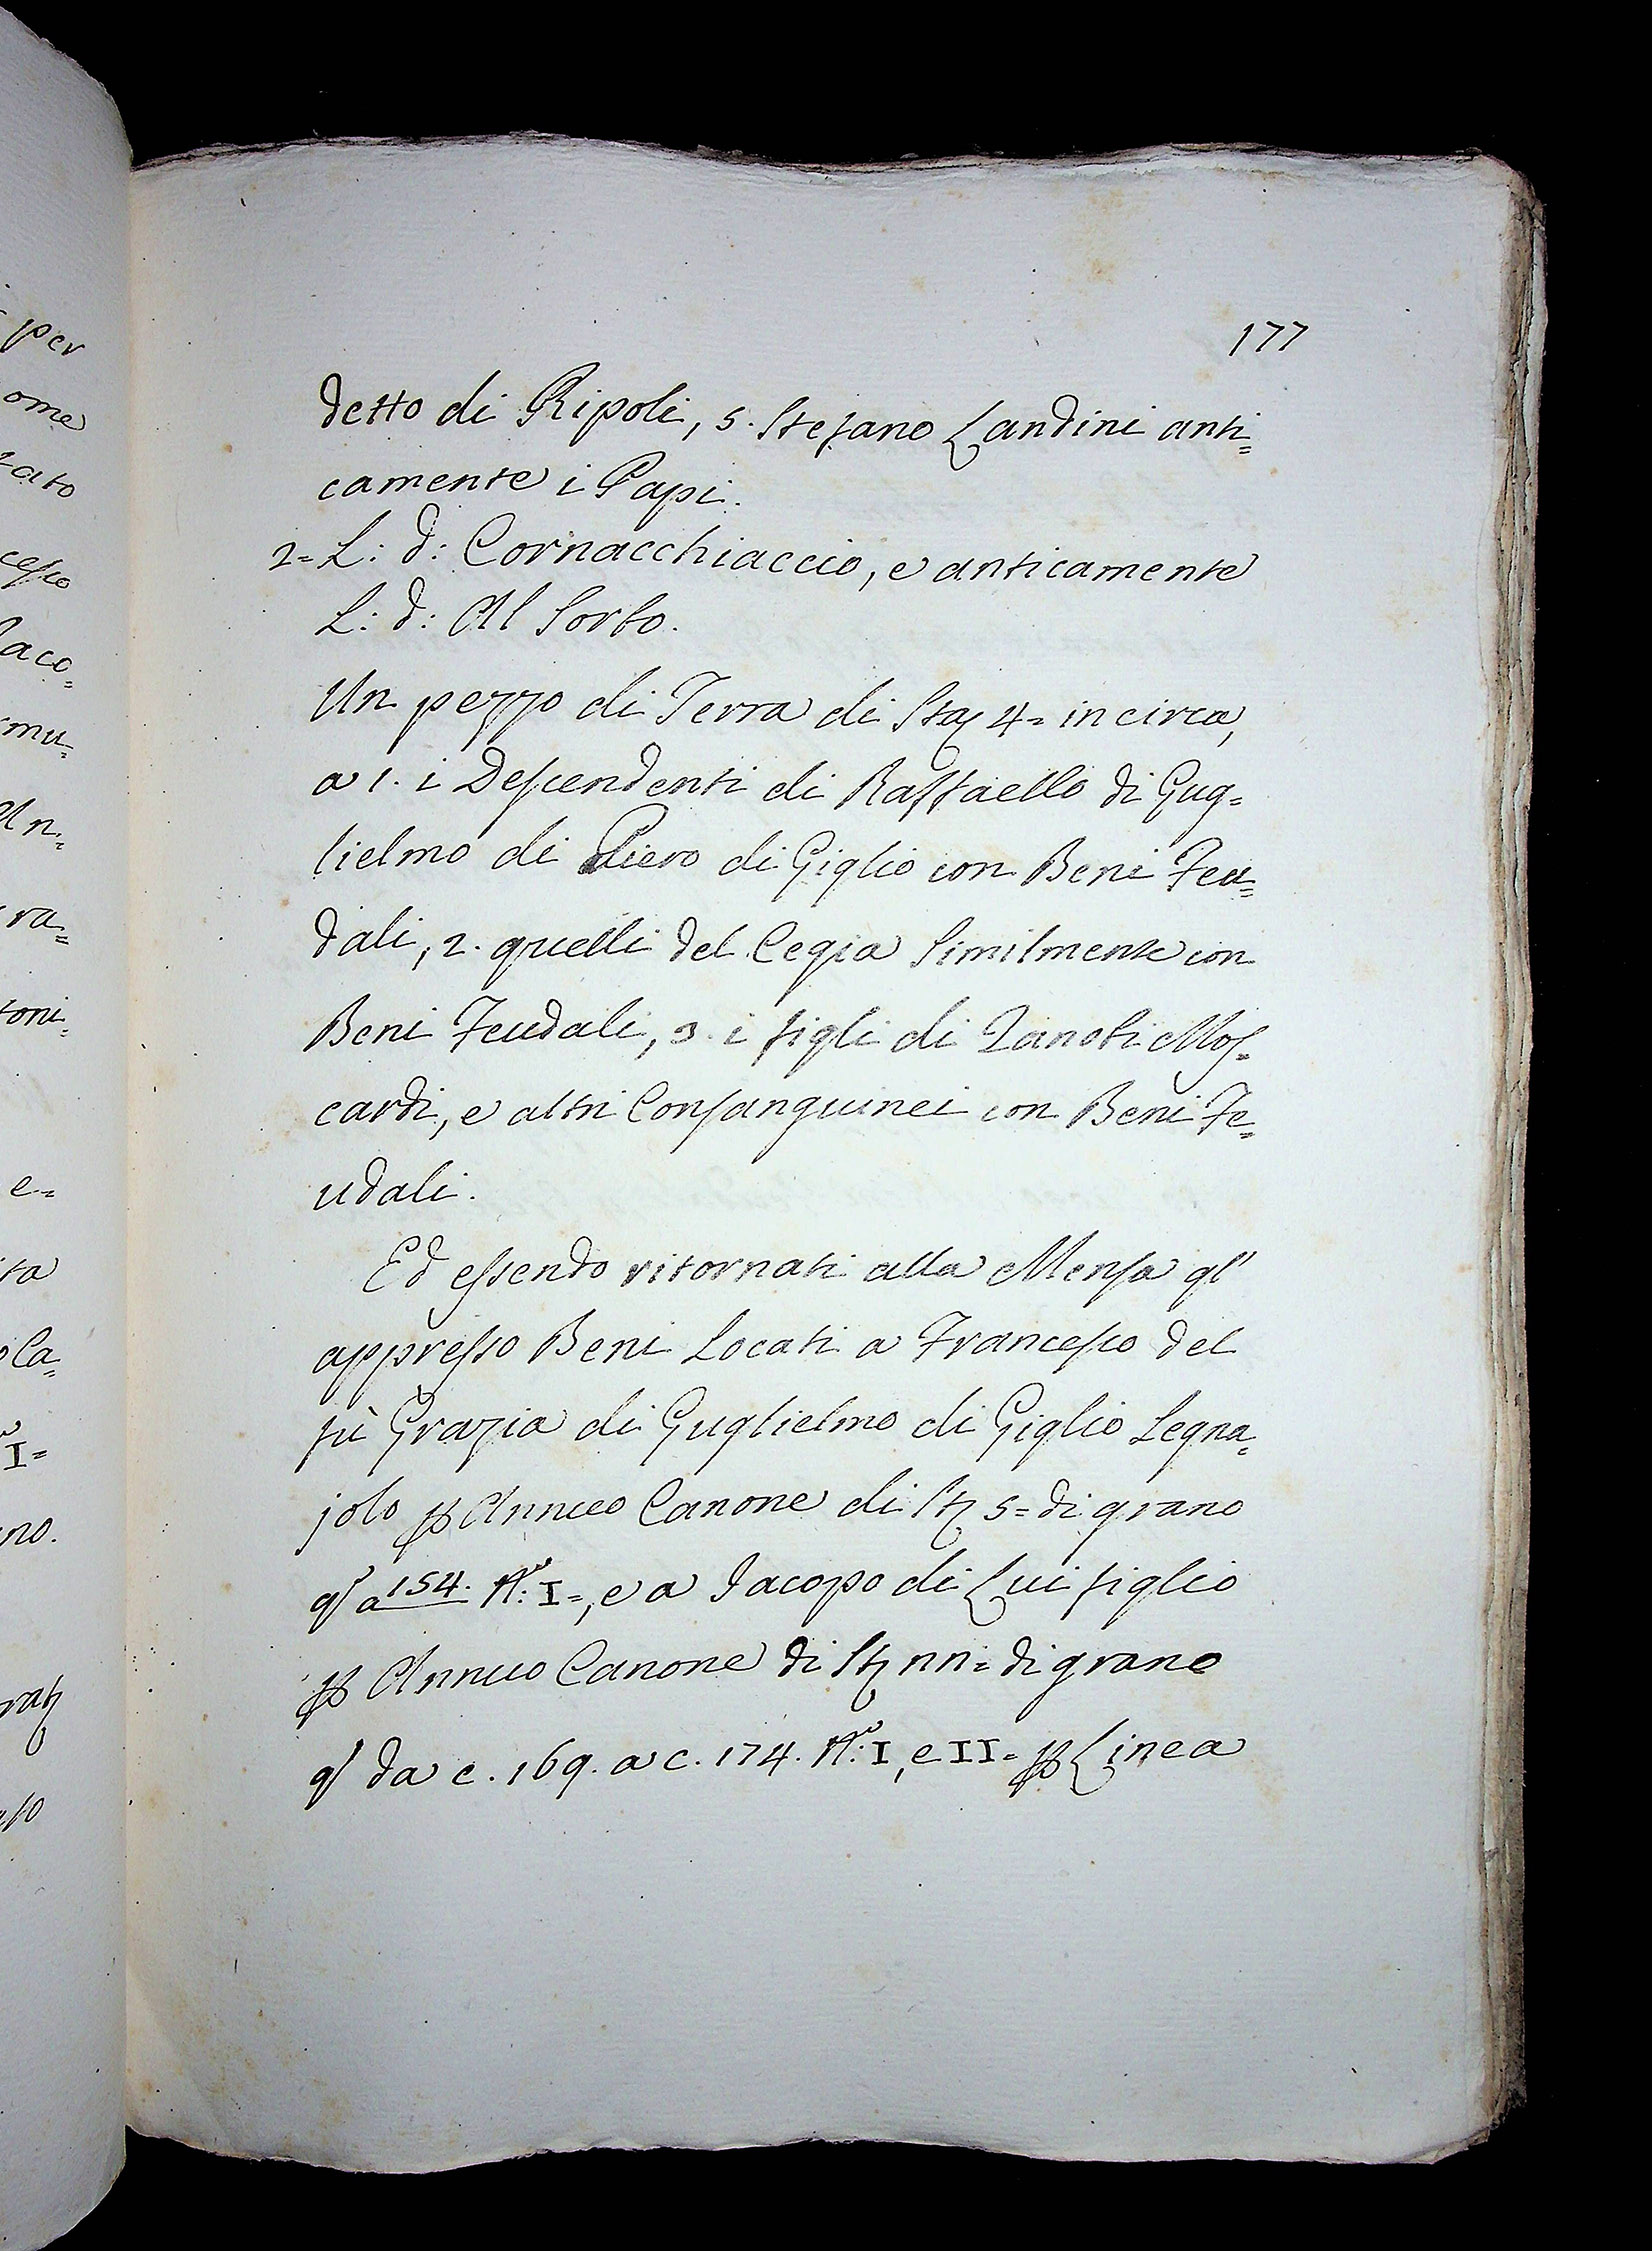 177
detto di Ripoli, 5. Stefano Landini anti=
camente i Papi.
2= L: d: Cornacchiaccio, e anticamente
L: d: Al Sorbo.
Un pezzo di Terra di Staj 4= in circa,
a 1. i Descendenti di Raffaello di Gug=
lielmo di Piero di Giglio con Beni Feu=
dali, 2. quelli del Cegia Similmente con
Beni Feudali, 3. i figli di Zanobi Mos=
cardi, e altri Consanguinei con Beni Fe=
udali.
Ed essendo ritornati alla Mensa gl'
appresso Beni Locati a Francesco del
fù Grazia di Guglielmo di Giglio Legna=
jolo p Annuo Canone di St 5= di grano
q a 154. N: I=, e a Jacopo di Lui figlio
p Annuo Canone di St nn= di grano
q da c. 169. a c. 174. N: I, e II= p Linea
per
ome
tato
cesco
Jaco=
mu=
An=
ra=
toni=
e=
ta
Ca=
I=
no.